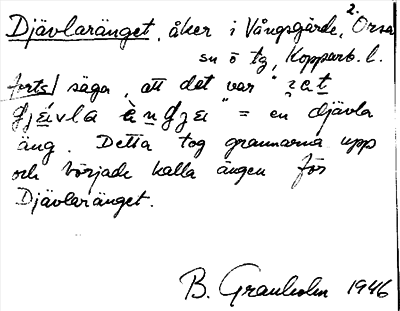 Djävlaränget, åker i Vångsgärde, 2. Orsa
sn ö tg, Kopparb. l.
forts/ säga, att det var "
" = en djävla
äng. Detta tog grannarna upp
och började kalla ängen för
Djävlaränget.
B. Granholm 1946